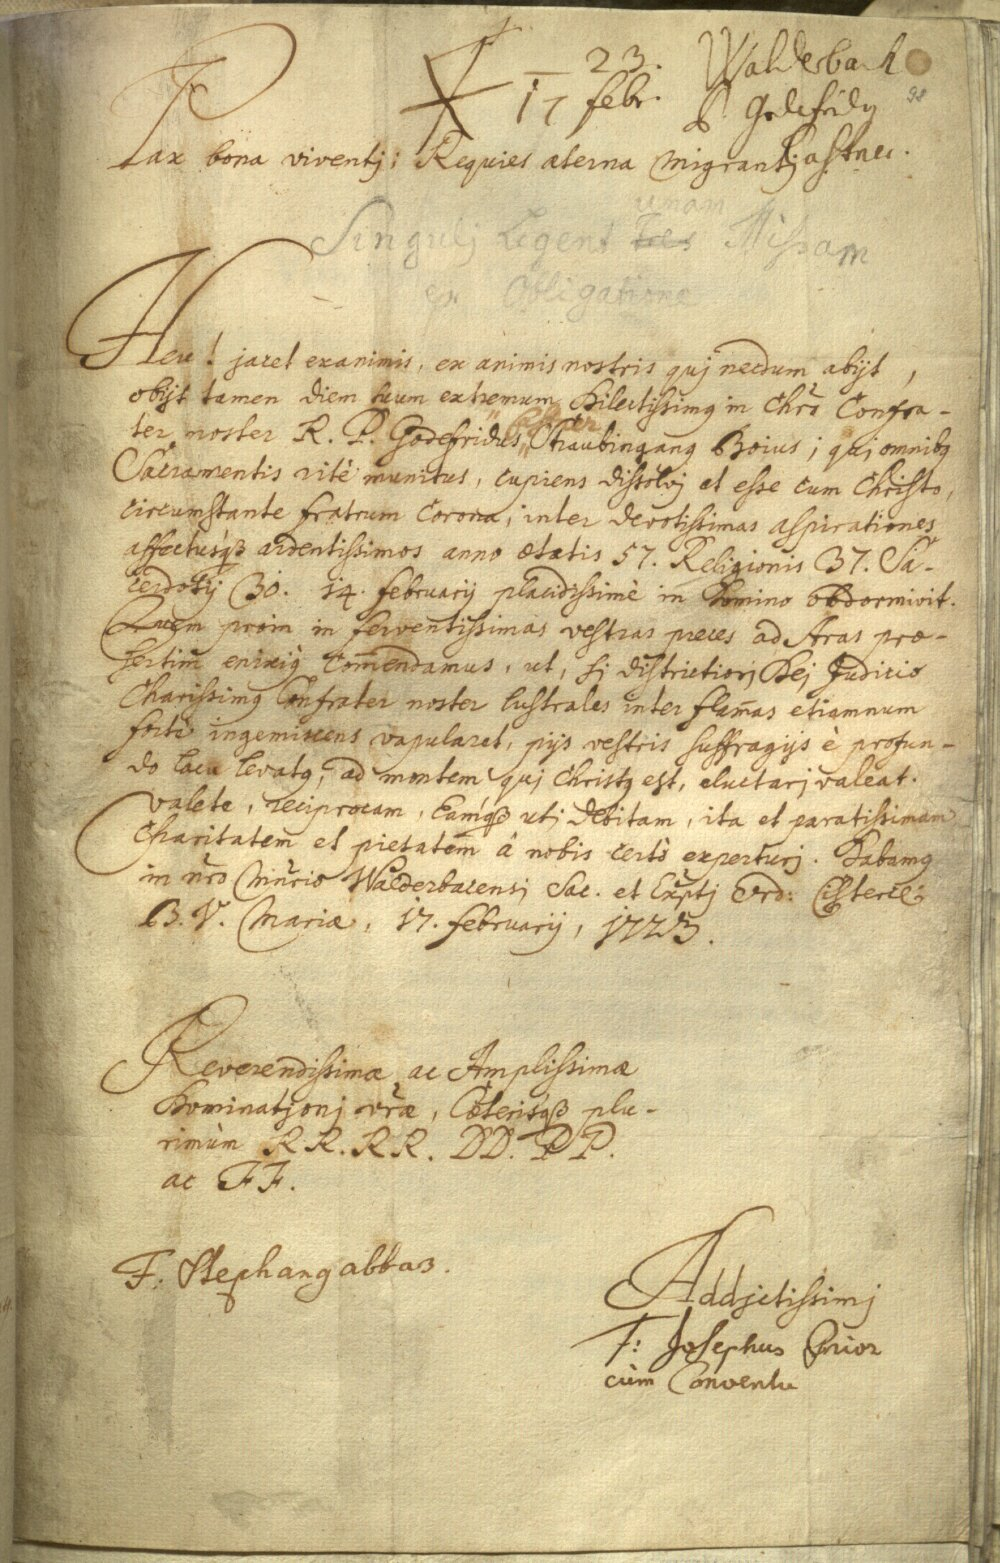 17 23. Walderbach
17 febr. P. Godefridꝰ
98
Pax bona viventj; Requies æterna migrantj
Kastner.
unam
Singulj legent Tres Missam
ex Obligatione
Heu! jacet exanimis, ex animis nostris quj necdum abijt,
obijt tamen diem suum extremum Dilectissimꝰ in Chrō Confra-
ter noster R. P. Godefridus, Straubinganꝰ Boius; quj omnibꝰ
Sacramentis ritè munitus, cupiens dissolvj et esse cum Christo,
circumstante fratrum Corona, inter devotissimas aspirationes
affectusqȝ ardentissimos anno ætatis 57. Religionis 37. Sa-
cerdotij 30. 14. februarij placidissimè in Domino obdormivit.
Quem proin in ferventissimas vestras preces ad Aras præ-
sertim enixiꝰ com̄endamus, ut, sj districtiorj Dej Judicio
Charissimꝰ Confrater noster lustrales inter flam̄as etiamnum
fortè ingemiscens vapularet, pijs vestris suffragijs è profun-
do lacu levatꝰ, ad montem quj Christꝰ est, eluctarj valeat.
Valete, reciprocam, Eamqȝ utj debitam, ita et paratissimam
Charitatem et pietatem â nobis certò experturj. Dabamꝰ
in nr̄o Mn̄rio Walderbacensj Sac. et Exēptj Ord: Cisterc:
B. V. Mariæ, 17. februarij, 1723.
Reverendissimæ ac Amplissimæ
Dominatjonj vr̄æ, Cæterisqȝ plu-
rimùm RR. RR. DD. PP.
ac FF.
F. Stephanꝰ abbas.
Addictissimj
F: Josephus Prior
cùm Conventu